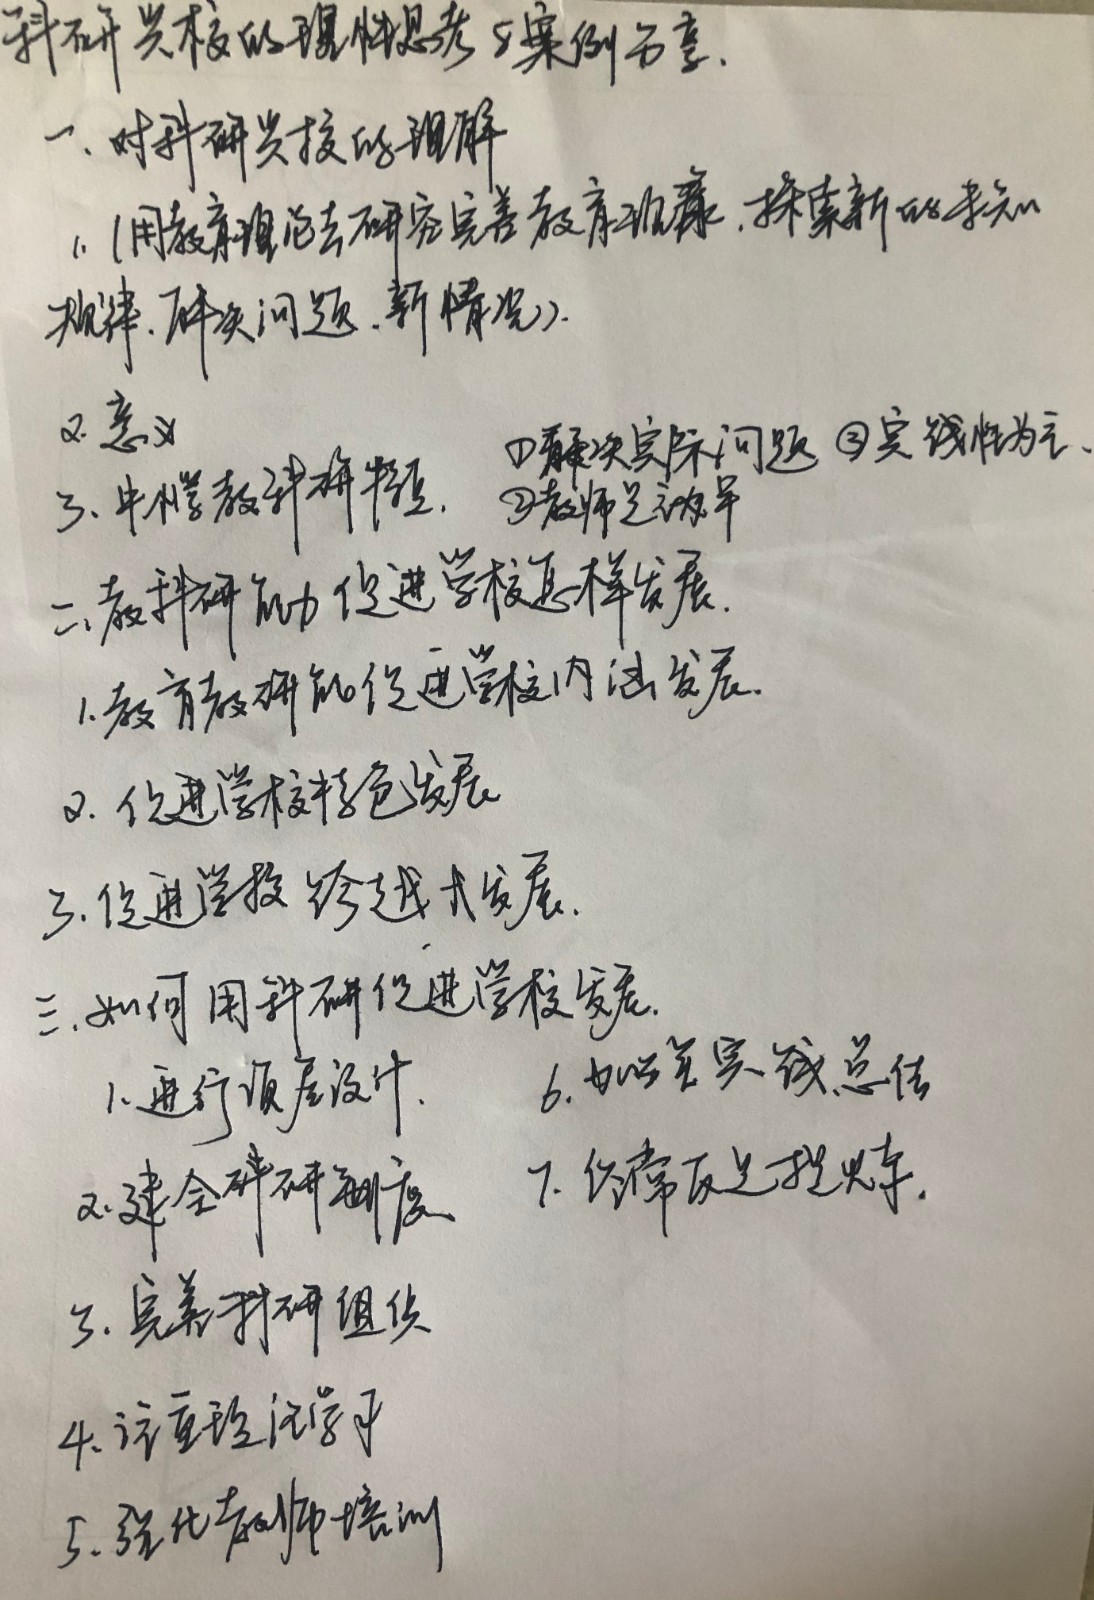 科研兴校的理性思考与案例分享.
一、对科研兴校的理解
1.(用教育理论去研究完善教育现象、探索新的未知
规律、解决问题、新情况).
2.意义
3.中小学教科研特征. ①解决实际问题 ③实践性为主.
②教师是主力军
二、教科研能力促进学校怎样发展.
1.教育教研能促进学校内涵发展.
2.促进学校特色发展
3.促进学校跨越式发展.
三.如何用科研促进学校发展.
1.进行顶层设计.
2.建全科研制度
3.完善科研组织
4.注重理论学习
5.强化教师培训
6.加强实践总结
7.经常反思提炼.